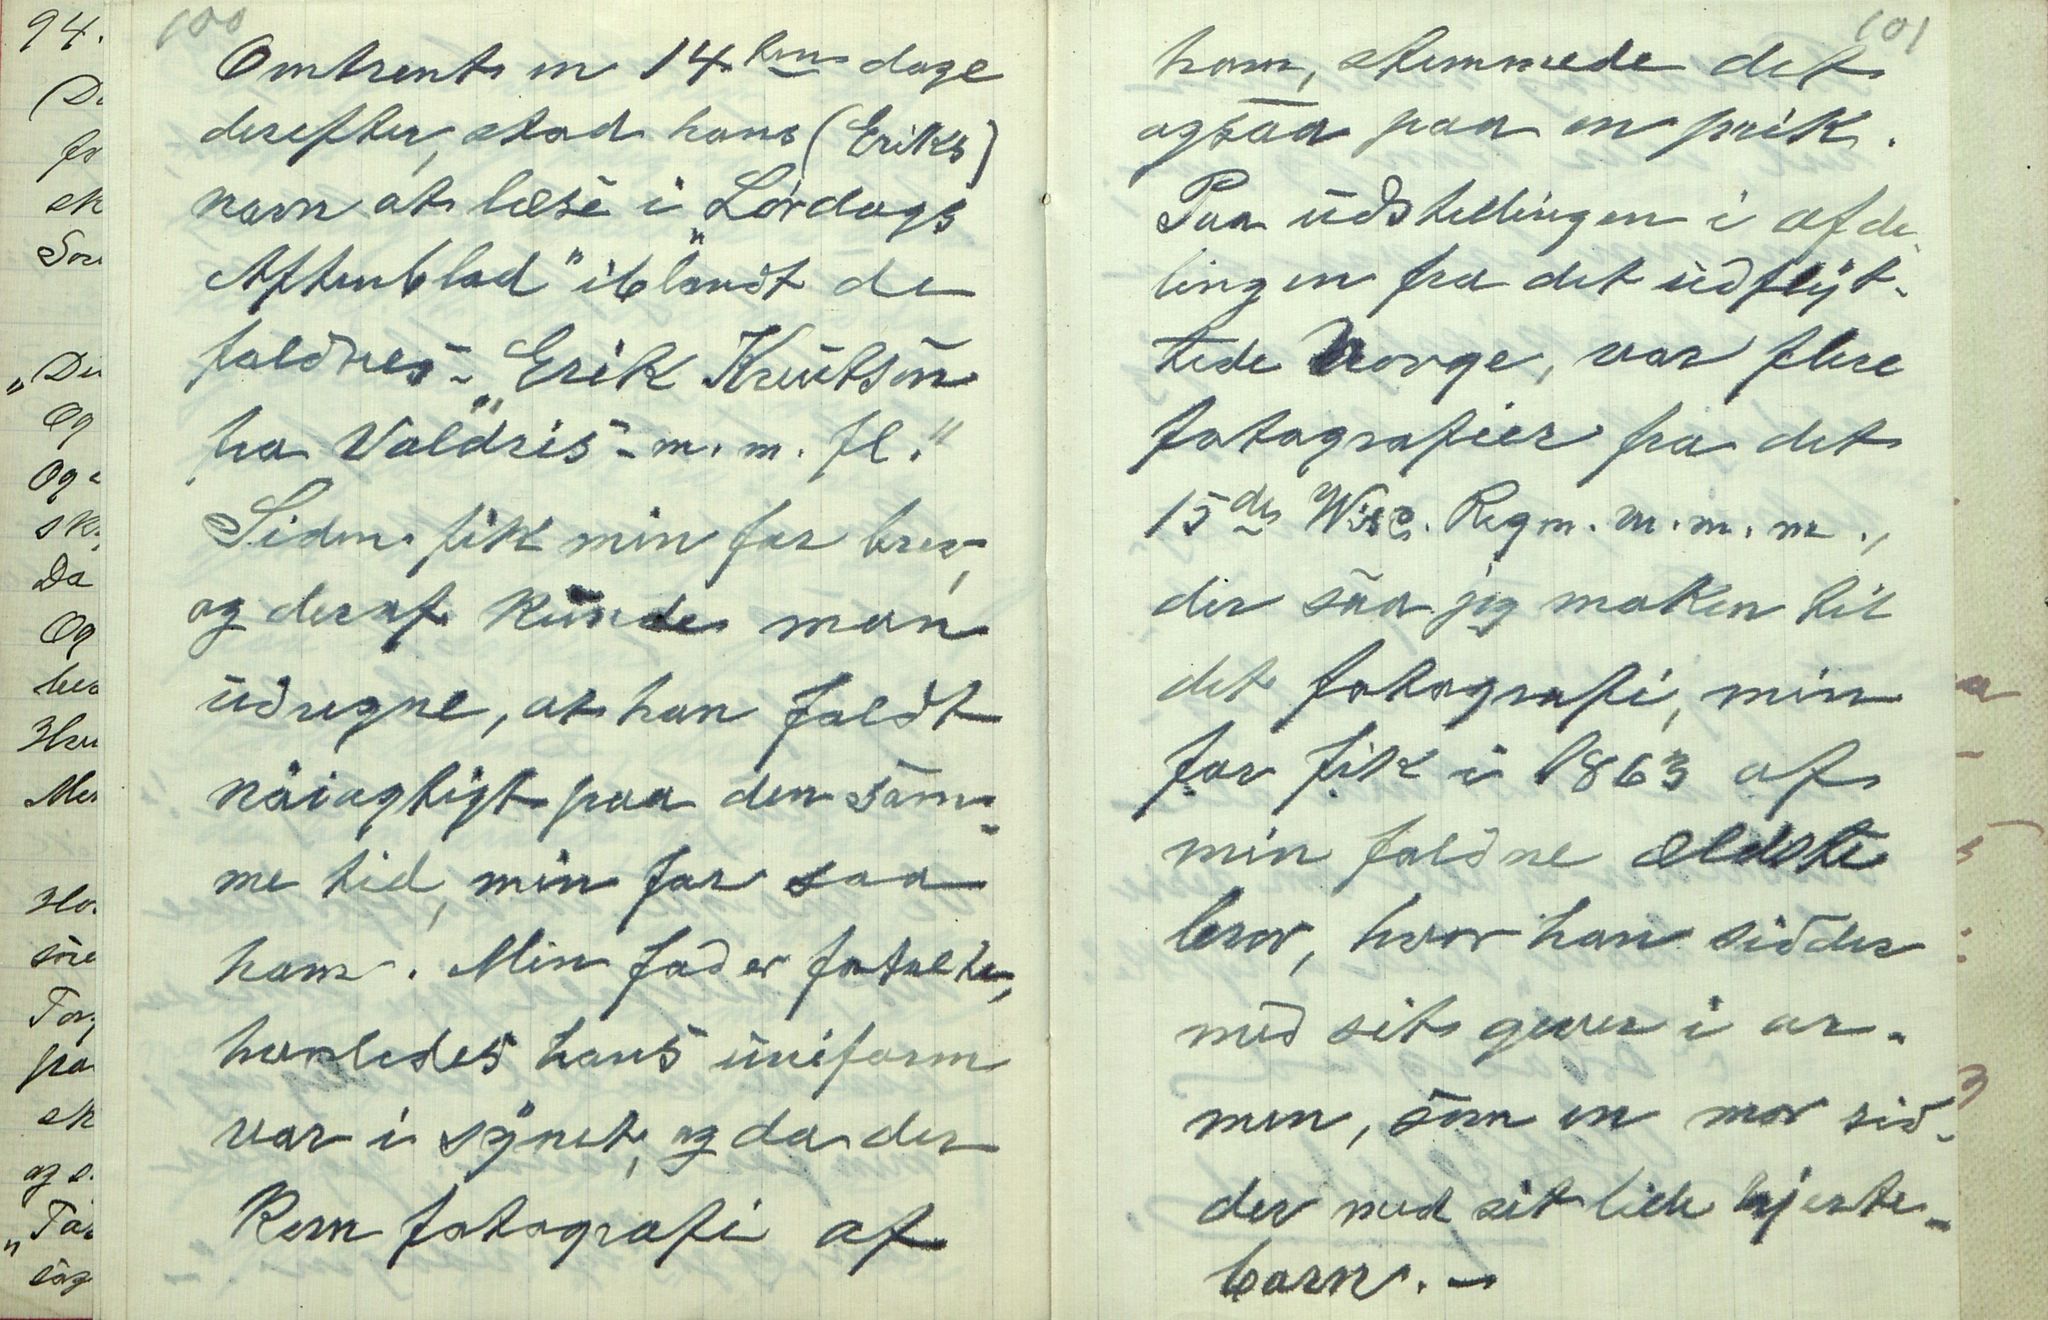 94.
(De
fr
sk
Sor
„Di
Og
Og
sk
Da
Og
ber
Men
Ho
søre
Tor
pa
sk
og s.
„Ta
sag
100
Omtrent en 14ten dage
derefter, stod hans (Eriks)
navn at læse i „Lørdags
Aftenblad" iblandt de
faldnes - „Erik Knutson
fra Valdris - m. m. fl."
Siden fik min far brev,
og deraf kunde man
udregne, at han faldt
nøiagtigt paa den sam-
me tid, min far saa
ham. Min fader fortalte,
hvorledes hans uniform
var i synet, og da der
kom fotografi af
101
ham, stemmede det
ogsaa paa en prik.
Paa udstellingen i afde-
lingen fra det udflyt-
tede Norge, var flere
fotografier fra det
15de Wisc. Regm. m. m. m.,
der saa jeg maken til
det fotografi, min
far fik i 1863 af
min faldne ældste
bror, hvor han sidder
med sit gever i ar-
men, som en mor sid-
der med sit lille hjerte-
barn. -